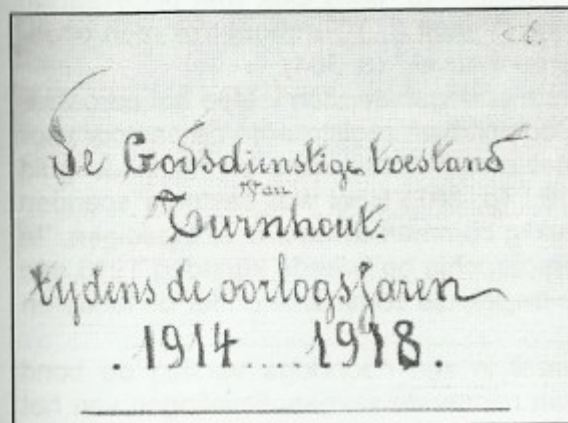 De Godsdienstige toestand
van
Turnhout.
tydens de oorlogsjaren
. 1914 .... 1918 .